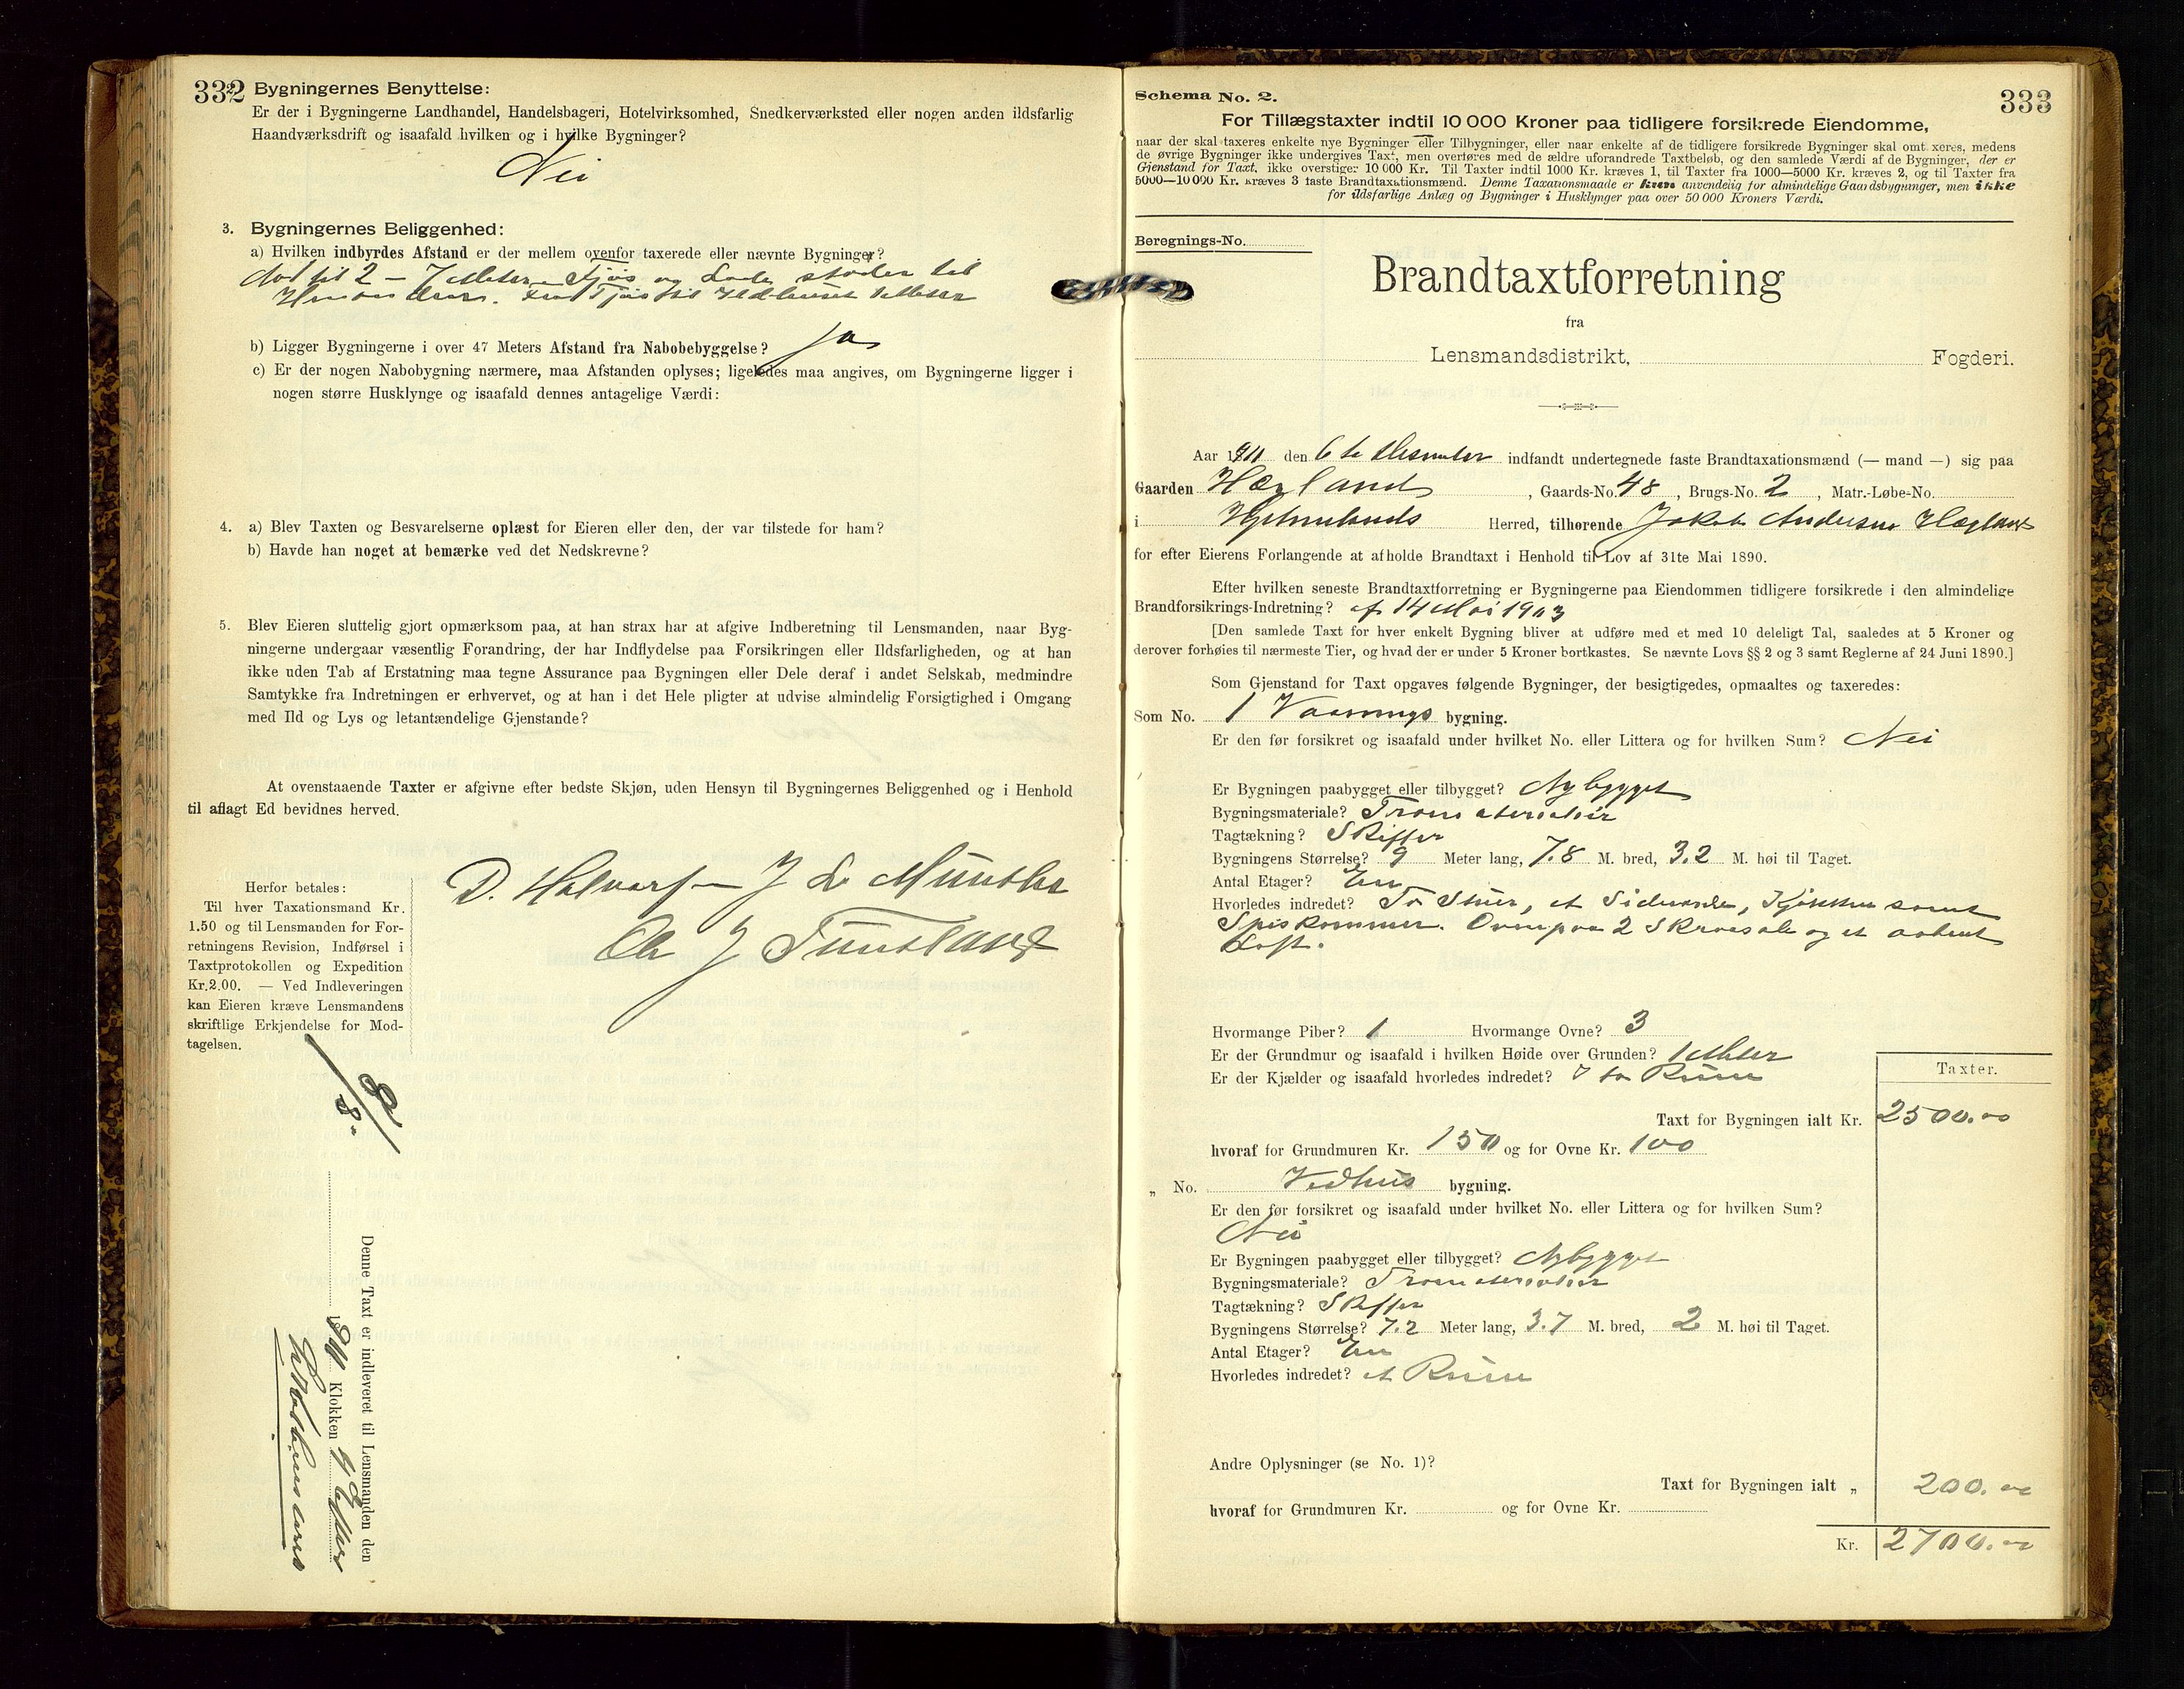 332
2. Bygningernes Benyttelse:
Er der i Bygningerne Landhandel, Handelsbageri, Hotelvirksomhed, Snedkerværksted eller nogen anden ildsfarlig
Haandværksdrift og isaafald hvilken og i hvilke Bygninger?
Nei
3. Bygningernes Beliggenhed:
a) Hvilken indbyrdes Afstand er der mellem ovenfor taxerede eller nævnte Bygninger?
til 2 — 7 Meter Fjøs og Lade støder til
Hinanden. Fra Fjøs til Vedhuset Meter
b) Ligger Bygningerne i over 47 Meters Afstand fra Nabobebyggelse? Ja
c) Er der nogen Nabobygning nærmere, maa Afstanden oplyses; ligeledes maa angives, om Bygningerne ligger i
nogen større Husklynge og isaafald dennes antagelige Værdi:
4. a) Blev Taxten og Besvarelserne oplæst for Eieren eller den, der var tilstede for ham?
b) Havde han noget at bemærke ved det Nedskrevne?
5. Blev Eieren sluttelig gjort opmærksom paa, at han strax har at afgive Indberetning til Lensmanden, naar Byg-
ningerne undergaar væsentlig Forandring, der har Indflydelse paa Forsikringen eller Ildsfarligheden, og at han
ikke uden Tab af Erstatning maa tegne Assurance paa Bygningen eller Dele deraf i andet Selskab, medmindre
Samtykke fra Indretningen er erhvervet, og at han i det Hele pligter at udvise almindelig Forsigtighed i Omgang
med Ild og Lys og letantændelige Gjenstande?
At ovenstaaende Taxter er afgivne efter bedste Skjøn, uden Hensyn til Bygningernes Beliggenhed og i Henhold
til aflagt Ed bevidnes herved.
D. Halvors J L
J Tunstand
Herfor betales:
Til hver Taxationsmand Kr.
1.50 og til Lensmanden for For-
retningens Revision, Indførsel i
Taxtprotokollen og Expedition
Kr.2.00. — Ved Indleveringen
kan Eieren kræve Lensmandens
skriftlige Erkjendelse for Mod-
tagelsen.
Denne Taxt er indleveret til Lensmanden den
Klokken 4 Efter
333
Schema No. 2.
For Tillægstaxter indtil 10 000 Kroner paa tidligere forsikrede Eiendomme,
naar der skal taxeres enkelte nye Bygninger eller Tilbygninger, eller naar enkelte af de tidligere forsikrede Bygninger skal omtaxeres, medens
de øvrige Bygninger ikke undergives Taxt, men overføres med de ældre uforandrede Taxtbeløb, og den samlede Værdi af de Bygninger, der er
Gjenstand for Taxt, ikke overstiger 10 000 Kr. Til Taxter indtil 1000 Kr. kræves 1, til Taxter fra 1000—5000 Kr. kræves 2, og til Taxter fra
5000—10 000 Kr. kræves 3 faste Brandtaxationsmænd. Denne Taxationsmaade er kun anvendelig for almindelige Gaardsbygninger, men ikke
for ildsfarlige Anlæg og Bygninger i Husklynger paa over 50 000 Kroners Værdi.
Beregnings-No.
Brandtaxtforretning
fra
Lensmandsdistrikt, Fogderi.
Aar 1911 den 6te Desember indfandt undertegnede faste Brandtaxationsmænd (— mand —) sig paa
Gaarden Høgland, Gaards-No. 48, Brugs-No. 2, Matr.-Løbe-No.
i Hjelmelands Herred, tilhørende Jakob Andersen Høgland
for efter Eierens Forlangende at afholde Brandtaxt i Henhold til Lov af 31te Mai 1890.
Efter hvilken seneste Brandtaxtforretning er Bygningerne paa Eiendommen tidligere forsikrede i den almindelige
Brandforsikrings-Indretning? af 14 Mai 1903
[Den samlede Taxt for hver enkelt Bygning bliver at udføre med et med 10 deleligt Tal, saaledes at 5 Kroner og
derover forhøies til nærmeste Tier, og hvad der er under 5 Kroner bortkastes. Se nævnte Lovs §§ 2 og 3 samt Reglerne af 24 Juni 1890.]
Som Gjenstand for Taxt opgaves følgende Bygninger, der besigtigedes, opmaaltes og taxeredes:
Som No. 1 Vaanings bygning.
Er den før forsikret og isaafald under hvilket No. eller Littera og for hvilken Sum? Nei
Er Bygningen paabygget eller tilbygget? Nybygget
Bygningsmateriale? Træmaterialier
Tagtækning? Skiffer
Bygningens Størrelse? 9 Meter lang, 7.8 M. bred, 3.2 M. høi til Taget.
Antal Etager? En
Hvorledes indredet? To Stuer, et Sideværelse, Kjøkken samt
Spiskammer. Ovenpaa 2 Skraasale og et aabent
Loft.
Hvormange Piber? 1 Hvormange Ovne? 3
Er der Grundmur og isaafald i hvilken Høide over Grunden? 1 Meter
Er der Kjælder og isaafald hvorledes indredet? I to Rum
Taxter.
Taxt for Bygningen ialt Kr. 2500.00
hvoraf for Grundmuren Kr. 150 og for Ovne Kr. 100
„ No. Vedhus bygning.
Er den før forsikret og isaafald under hvilket No. eller Littera og for hvilken Sum?
Nei
Er Bygningen paabygget eller tilbygget? Nybygget
Bygningsmateriale? Træmaterialier
Tagtækning? Skiffer
Bygningens Størrelse? 7.2 Meter lang, 3.7 M. bred, 2 M. høi til Taget.
Antal Etager? En
Hvorledes indredet? et Rum
Andre Oplysninger (se No. 1)?
Taxt for Bygningen ialt „ 200.00
hvoraf for Grundmuren Kr. og for Ovne Kr.
Kr. 2700.00